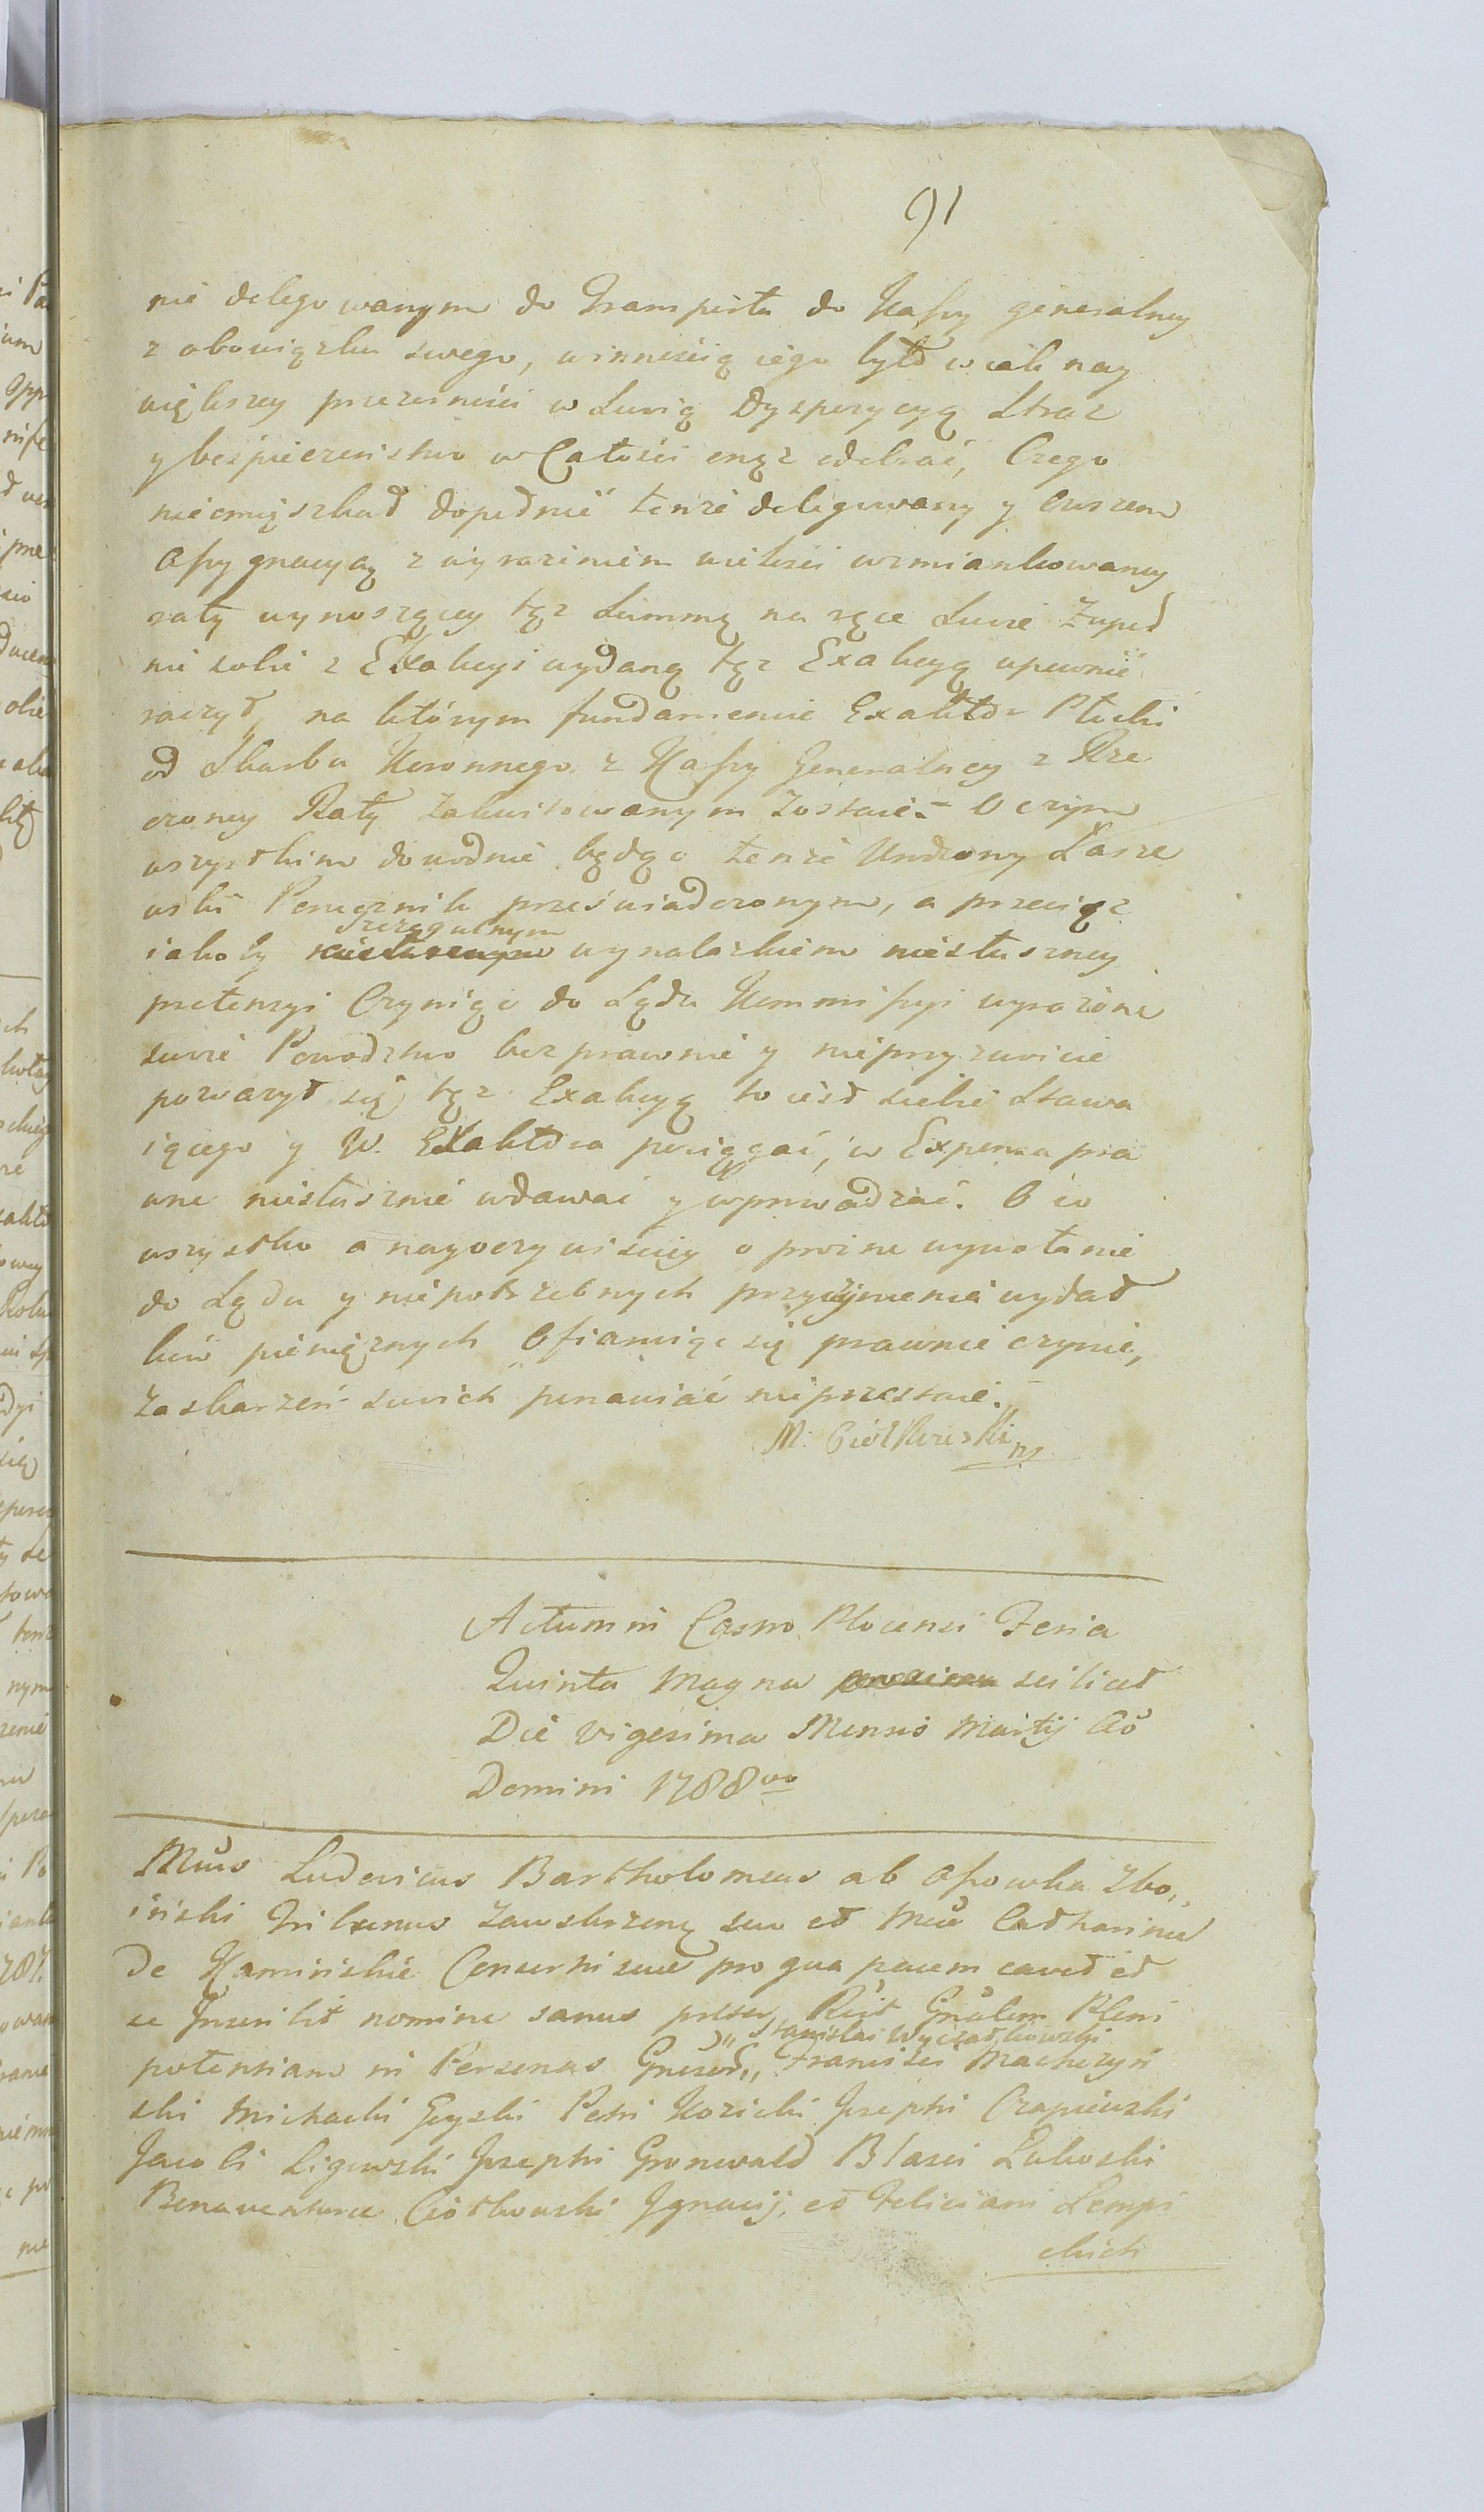 91
nie delegowanym do Transportu do Kassy generalney
z obowiązku swego, winniścią iego było w iak nay
większey prezesności w Swoią Dyspozycyą Straz
y beśpieczeństwo w Całości onąz odebrać, Czego
nieomięszkał dopełnić tenże delegowany y owszem
Assygnacyą z wyrażeniem wielości wzmiankowaney
raty wynoszącey tęz Summę na ręce Swoie Zupeł
nie sobie z Exakcyi wydaną tęz Exakcyą upewnić
raczył, na którym fundamencie Exaktor Płocki
od Skarbu Koronnego z Kassy Generalney z Rze
czoney Raty zakwitowanym został. O czym
wszystkim dowodnie będąc tenże Urodzony Łasze
wski Porucznik przeświadczonym, a przeciąz
szczegulnym
iakoby wynalazkiem niesłuszney
pretensyi Czyniąc do Sądu Kommissyi wyrażone
swoie Powodztwo bezprawnie y nieprzyzwoicie
powazył się tęz Exakcyą to iest siebie Stawa
iącego y W. Exaktora pociągać, w Expensa pra
wne niesłusznie wdawać y wprowadzać. O co
wszystko a nayoczywiściey o prożne wywołanie
do Sądu y niepotrzebnych przyczynienia wydat
ków pieniężnych Ofiaruiąc się prawnie czynić,
Zaskarzeń swoich ponawiać nieprzestaie.
M. Ciółkowski
Actum in Castro Plocensi Feria
Quinta Magna scilicet
Die Vigesima Mensis Martij Ao
Domini 1788vo
Mcus Ludovicus Bartholomeus ab Ossowka Zbo,,
iński Tribunus Zawskrzenę suo et Mca Catharina
De Kamińskie Consortis suae pro qua pacem cavet et
se Inscribit nomine sanus Gnalem Pleni
Stanislai
potentiam in Personas Francisci
ski Michaeli Gryski Petri Kozicki Josephi Czapiewski
Jacobi Ligowski Josephi Gronwald Blasei Łukoski
Bonaventurae Ciołkowski Ignacij, et Feliciani Lempi
ckich